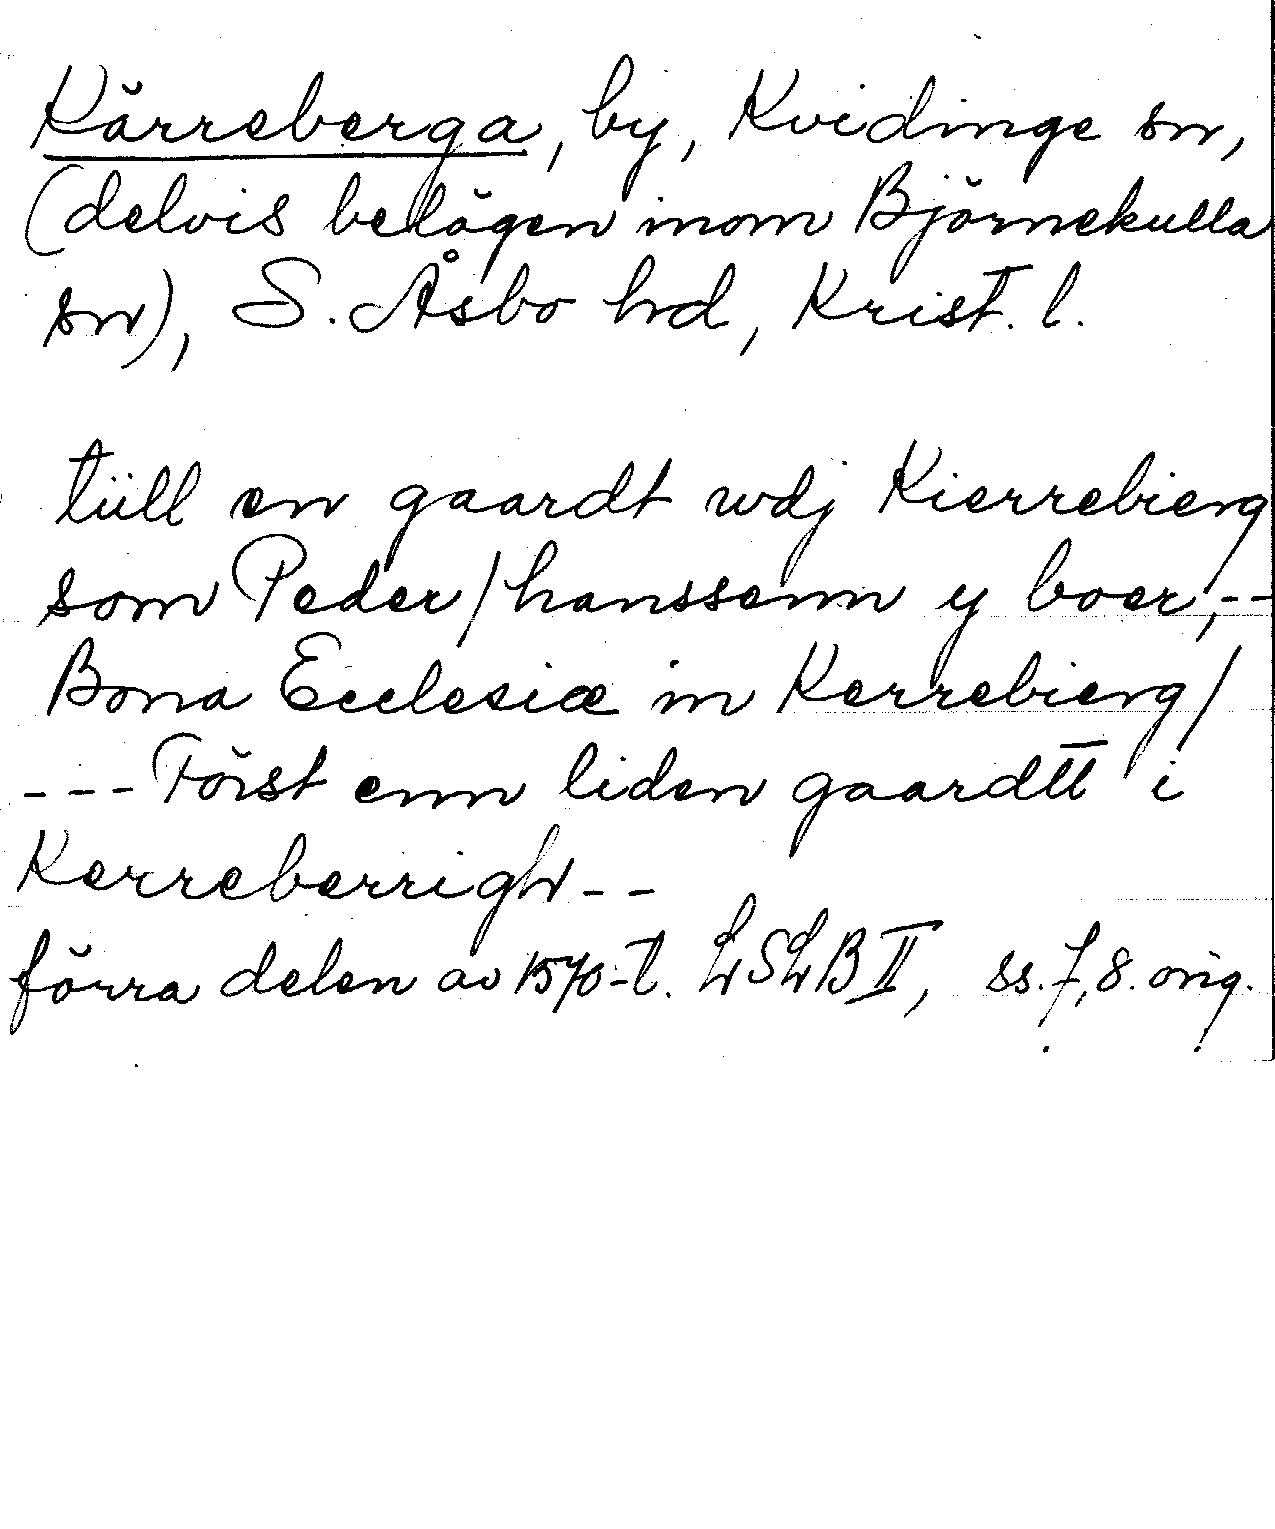 Kärreberga, by, Kvidinge sn,
(delvis belägen inom Björnekulla
sn), S. Åsbo hd, Krist. l.
tiill en gaardt wdj Kierrebierg
som Peder/hanssenn y boer,--
Bona Ecclesiæ in Kerrebierg/
---Först enn liden gaardtt i
Kerreberrigh--
förra delen av 1570-t. LSLB II, ss. 7, 8. orig.